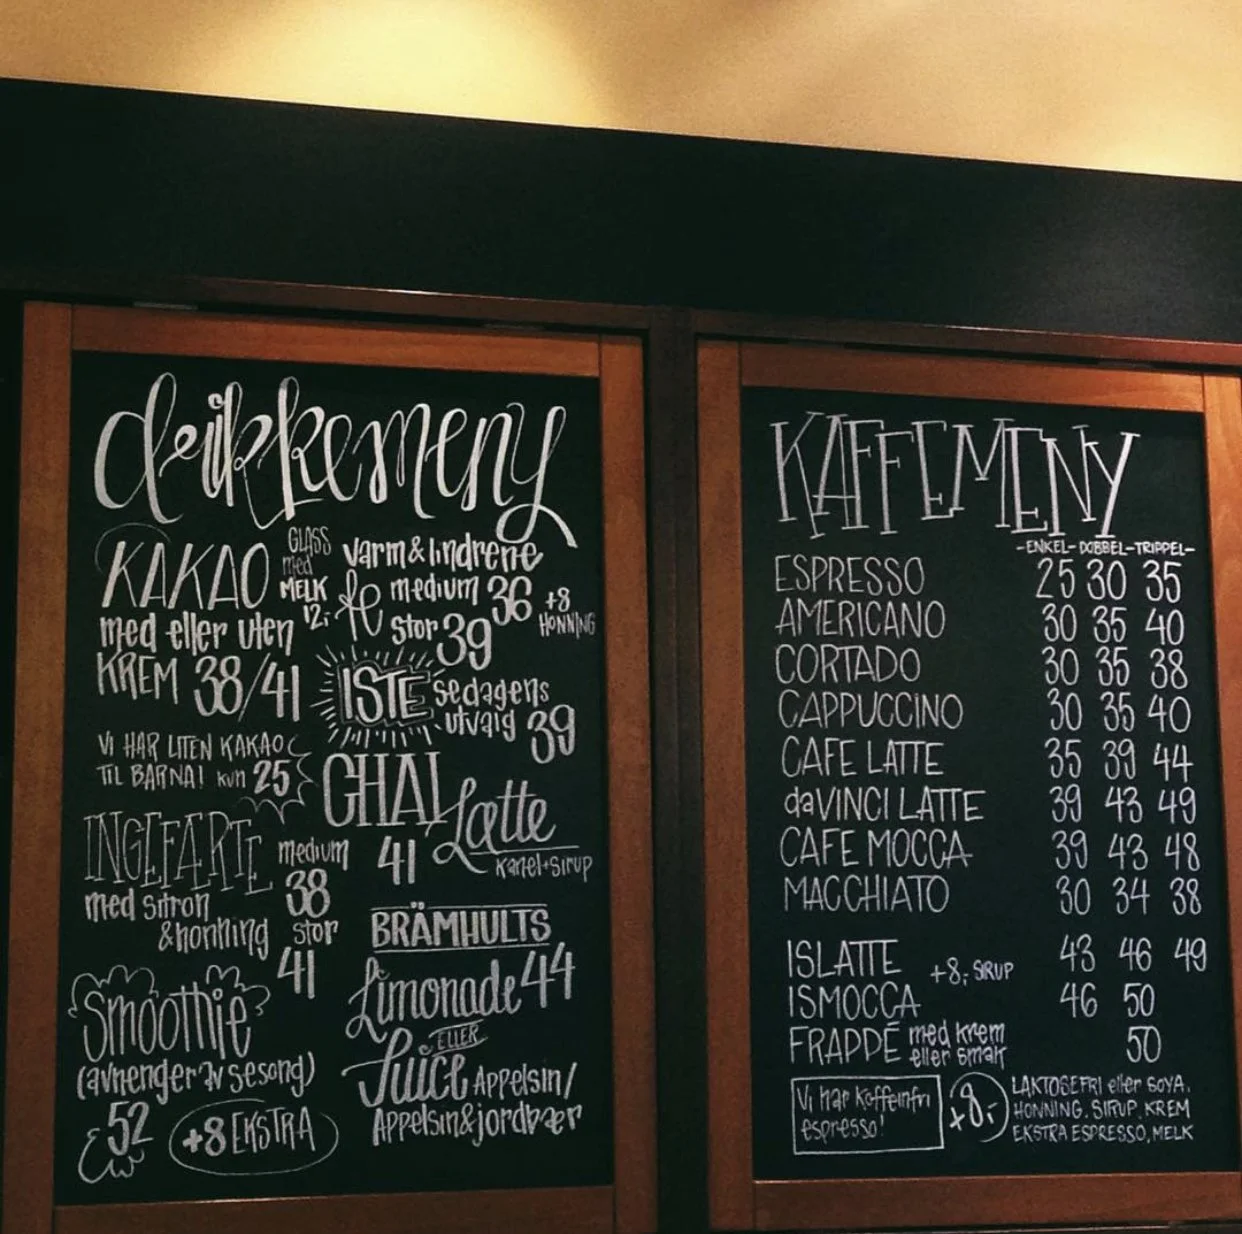 drikkemeny
KAKAO
med eller uten
KREM 38/41
GLASS
med
MELK
12,-
VI HAR LITEN KAKAO
TIL BARNA! kun 25
INGEFÆRTE
med sitron
&honning
medium
38
stor
41
Smoothie
(avhenger av sesong)
52
+8 EKSTRA
varm & lindrende
te medium 36
stor 39
+8
HONNING
ISTE se dagens
utvalg 39
CHAI Latte
41 kanel+sirup
BRÄMHULTS
Limonade 44
ELLER
Juice Appelsin/
Appelsin&jordbær
KAFFEMENY
-ENKEL-DOBBEL-TRIPPEL-
ESPRESSO 25 30 35
AMERICANO 30 35 40
CORTADO 30 35 38
CAPPUCCINO 30 35 40
CAFE LATTE 35 39 44
daVINCI LATTE 39 43 49
CAFE MOCCA 39 43 48
MACCHIATO 30 34 38
ISLATTE +8,- SIRUP 43 46 49
ISMOCCA 46 50
FRAPPÉ med krem
eller smak 50
Vi har koffeinfri
espresso!
+8,-
LAKTOSEFRI eller SOYA,
HONNING, SIRUP, KREM
EKSTRA ESPRESSO, MELK